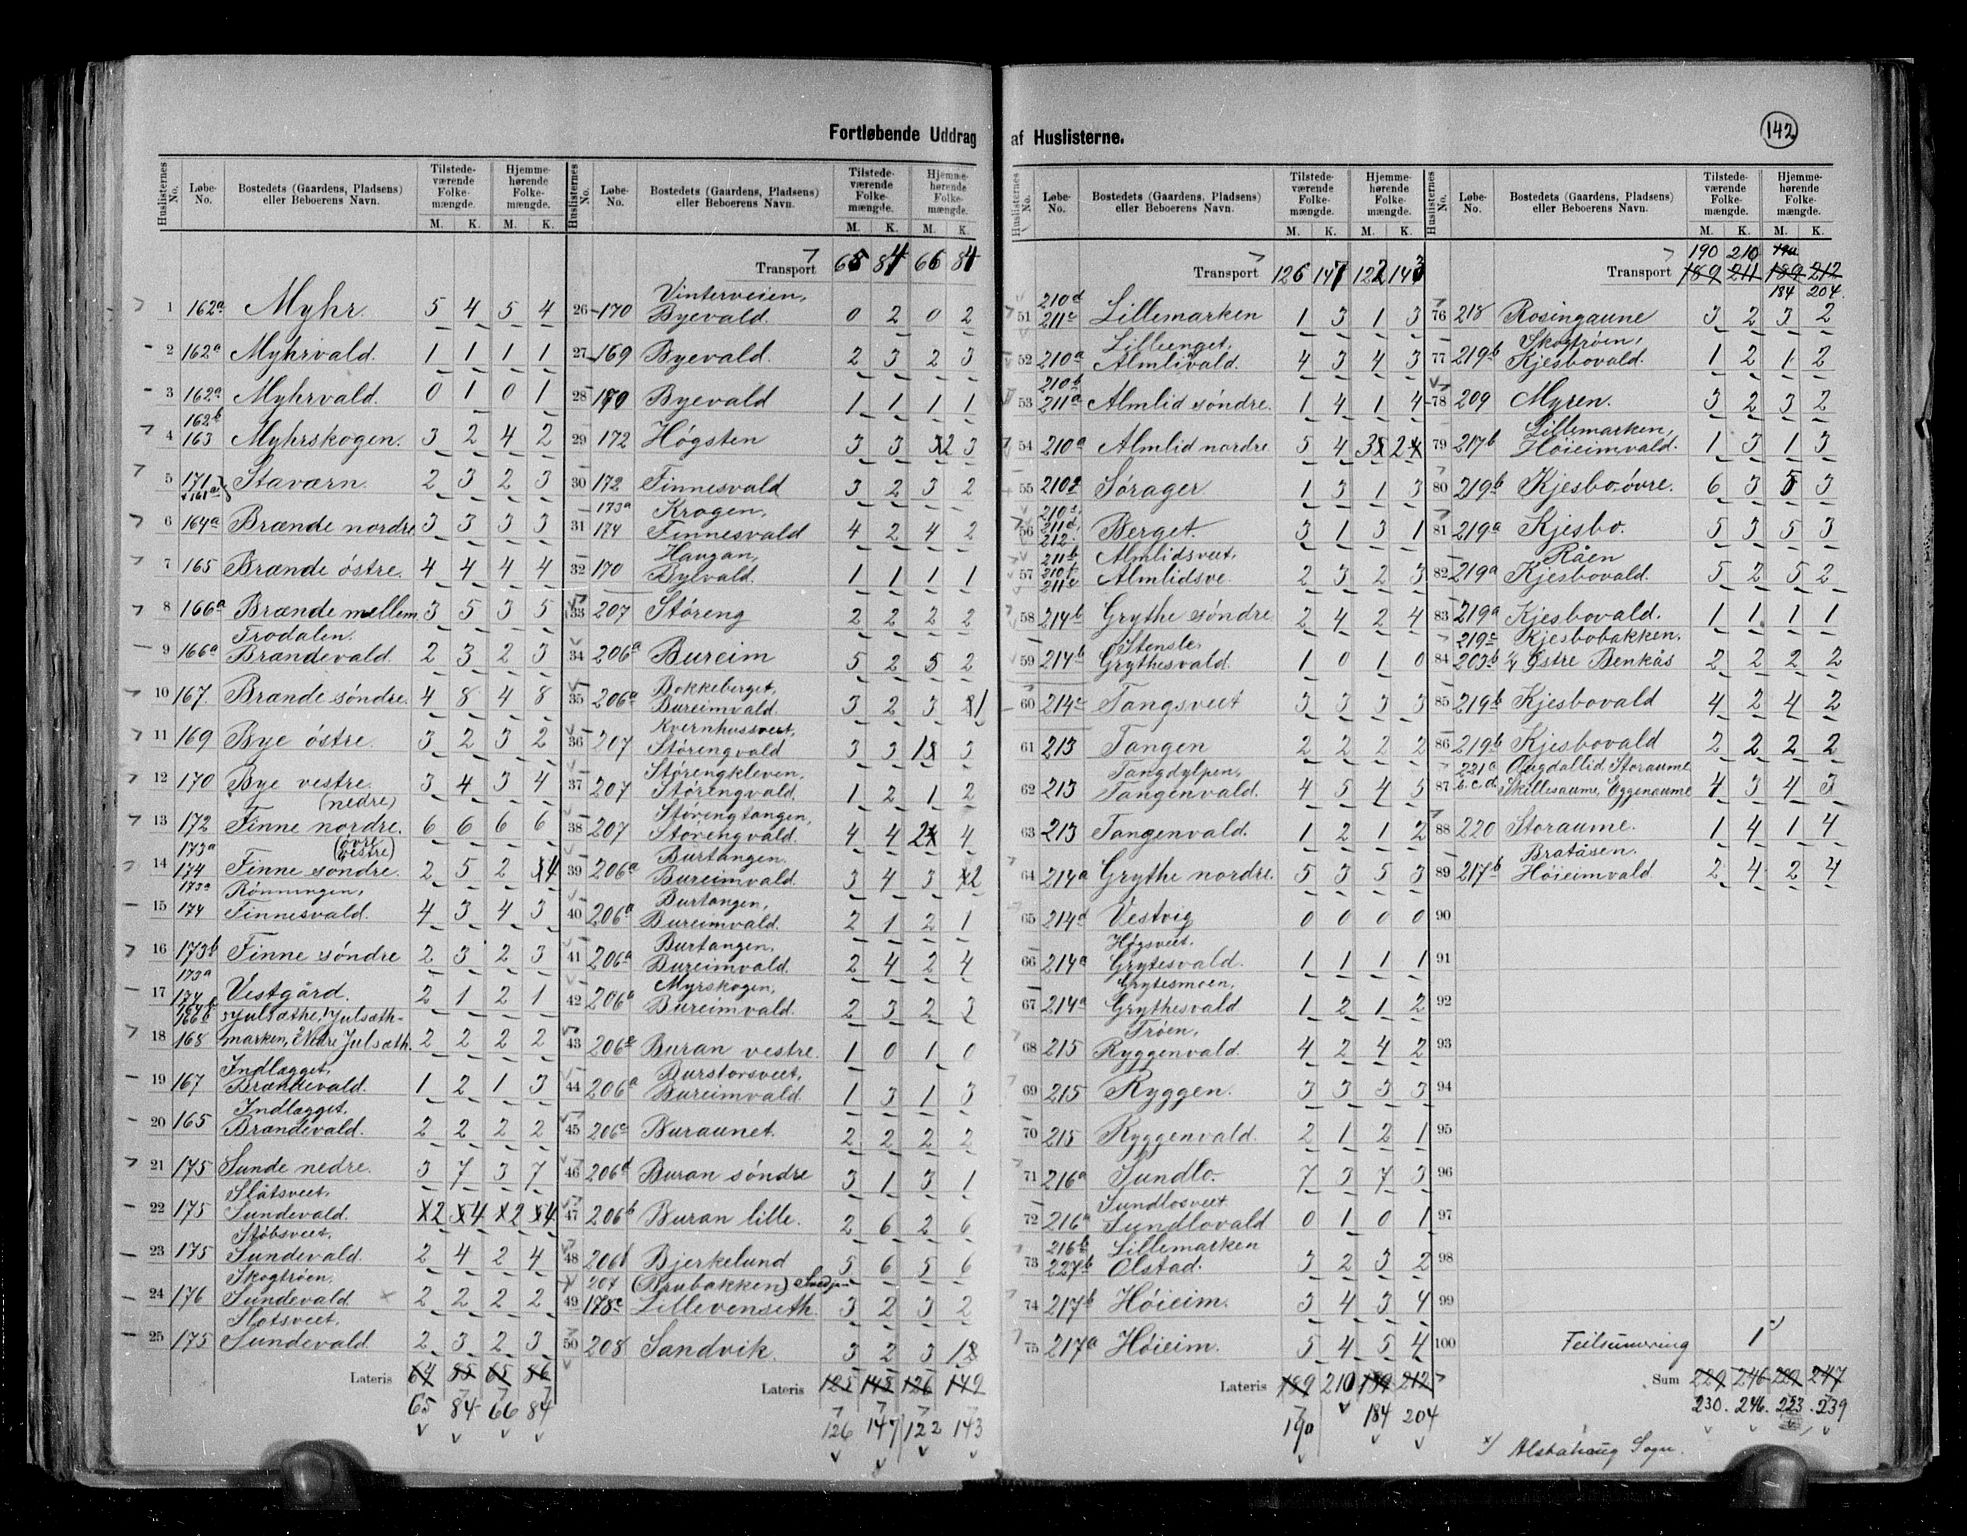 Fortløbende Uddrag af Huslisterne.
142
Huslisternes No. Løbe-No. Bostedets (Gaardens, Pladsens) eller Beboerens Navn. Tilstedeværende Folkemængde. M. K. Hjemmehørende Folkemængde. M. K.
1 162a Myhr. 5 4 5 4
2 162a Myhrvald. 1 1 1 1
3 162a Myhrvald. 0 1 0 1
162b
4 163 Myhrskogen. 3 2 4 2
5 171 Staværn. 2 3 2 3
6 164a Brænde nordre 3 3 3 3
7 165 Brænde østre. 4 4 4 4
8 166a Brænde mellem 3 5 3 5
Trodalen.
9 166a Brændevald. 2 3 2 3
10 167. Brænde søndre. 4 8 4 8
11 169 Bye østre. 3 2 3 2
12 170 Bye vestre. 3 4 3 4
(nedre)
13 172 Finne nordre. 6 6 6 6
173a (øvre vestre)
14 174 Finne søndre. 2 5 2 4
173a Rønningen,
15 174 Finnesvald. 4 3 4 3
16 173b Finne søndre 2 3 2 3
173a
17 174 Vestgård. 2 1 2 1
166b Julsæthe, Julsæth-
18 168 marken, Nedre Julsæth. 2 2 2 2
Indlægget,
19 167 Brændevald. 1 2 1 3
Indlægget,
20 165 Brændevald. 2 2 2 2
21 175 Sunde nedre. 3 7 3 7
Slåtsveet,
22 175 Sundevald. 2 4 2 4
Støbsveet,
23 175 Sundevald. 2 4 2 4
Skogtrøen,
24 176 Sundevald. 2 2 2 2
Slåtsveet,
25 175 Sundevald. 2 3 2 3
Lateris 64 85 65 86
65 84 66 84
Huslisternes No. Løbe-No. Bostedets (Gaardens, Pladsens) eller Beboerens Navn. Tilstedeværende Folkemængde. M. K. Hjemmehørende Folkemængde. M. K.
Transport 65 84 66 84
Vinterveien,
26 170 Byevald. 0 2 0 2
27 169 Byevald. 2 3 2 3
28 170 Byevald 1 1 1 1
29 172 Høgsten 3 3 2 3
30 172 Finnesvald 3 2 3 2
173a Krogen,
31 174 Finnesvald 4 2 4 2
Haugan,
32 170 Byevald. 1 1 1 1
33 207 Støreng 2 2 2 2
34 206a Bureim 5 2 5 2
Bokkeberget,
35 206a Bureimvald. 3 2 3 1
Kvernhussveet,
36 207 Størengvald 3 3 1 3
Størengkleven,
37 207 Størengvald. 1 2 1 2
Størengtangen,
38 207 Størengvald. 4 4 2 4
Burtangen.
39 206a Bureimvald. 3 4 3 2
Burtangen,
40 206a Bureimvald. 2 1 2 1
Burtangen,
41 206a Bureimvald. 2 4 2 4
Myrskogen,
42 206a Bureimvald. 2 3 2 3
43 206c Buran vestre. 1 0 1 0
Burstorsveet,
44 206a Bureimvald. 1 3 1 3
45 206c Buraunet. 2 2 2 2
46 206d Buran søndre 3 1 3 1
47 206b Buran lille. 2 6 2 6
48 206f Bjerkelund 5 6 5 6
207 (Brubakken)
49 178c Lillevenseth. 3 2 3 2
50 208 Sandvik. 3 2 3 1
Lateris 125 148 126 149
126 147 122 143
Huslisternes No. Løbe-No. Bostedets (Gaardens, Pladsens) eller Beboerens Navn. Tilstedeværende Folkemængde. M. K. Hjemmehørende Folkemængde. M. K.
Transport 126 147 122 143
210d
51 211c Lillemarken 1 3 1 3
Lilleenget,
52 210a Almlivald. 4 3 4 3
210b
53 211a Almlid søndre. 1 4 1 4
54 210a Almlid nordre 5 4 3 2
55 210e Sørager 1 3 1 3
211d
56 212. Berget. 3 1 3 1
211b Almlidsveet,
57 210f 211e Almlidsve. 2 3 2 3
58 214b Grythe søndre 2 4 2 4
Stensle,
59 214b Grythesvald. 1 0 1 0
60 214c Tangsveet 3 3 3 3
61 213 Tangen 2 2 2 2
Tangdylpen,
62 213 Tangenvald. 4 5 4 5
63 213 Tangenvald. 1 2 1 2
64 214a Grythe nordre. 5 3 5 3
65 214d Vestvig 0 0 0 0
Høgsveet.
66 214a Grytesvald. 1 1 1 1
Grytesmoen,
67 214a Grythesvald 1 2 1 2
Trøen,
68 215 Ryggenvald. 4 2 4 2
69 215 Ryggen. 3 3 3 3
70 215 Ryggenvald. 2 1 2 1
71 216a Sundlo. 7 3 7 3
Sundlosveet
72 216a Sundlovald 0 1 0 1
216b Lillemarken
73 227b Olstad. 3 2 3 2
74 217b Høieim. 3 4 3 4
75 217a Høieim. 5 4 5 4
Lateris 189 210 189 212
190 184 204
Huslisternes No. Løbe-No. Bostedets (Gaardens, Pladsens) eller Beboerens Navn. Tilstedeværende Folkemængde. M. K. Hjemmehørende Folkemængde. M. K.
190 210
Transport 189 211 189 212
184 204.
76 218 Rosingaune 3 2 3 2
Skogtrøen,
77 219b Kjesbovald. 1 2 1 2
78 209 Myren. 3 2 3 2
Lillemarken,
79 217b Høieimvald. 1 3 1 3
80 219b Kjesbo øvre. 6 3 5 3
81 219a Kjesbo. 5 3 5 3
Råen
82 219a Kjesbovald. 5 2 5 2
83 219a Kjesbovald. 1 1 1 1
219c Kjesbobakken.
84 203b Østre Benkås 2 2 2 2
85 219b Kjesbovald 4 2 4 2
86 219b Kjesbovald 2 2 2 2
221a Ougdallid Storaume
87 b.c.d. Skillesaume, Eggenaume 4 3 4 3
88 220 Storaume. 1 4 1 4
Bratåsen.
89 217b Høieimvald 2 4 2 4
90
91
92
93
94
95
96
97
98
99
100 Feilsumering 1
Sum 229 246 229 247
230. 246. 223. 239
x) Alstahaug Sogn.